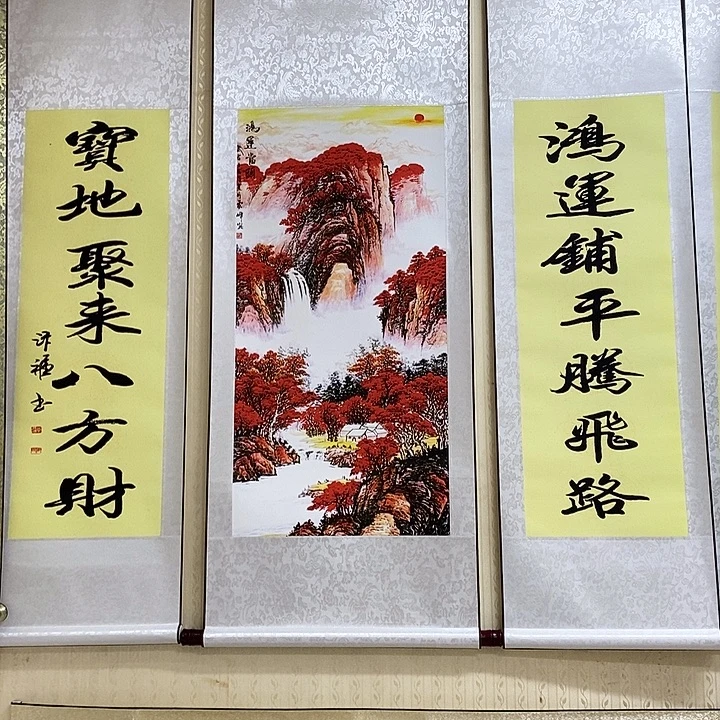 鴻運鋪平騰飛路
鴻運當頭
寶地聚来八方財
许穜书